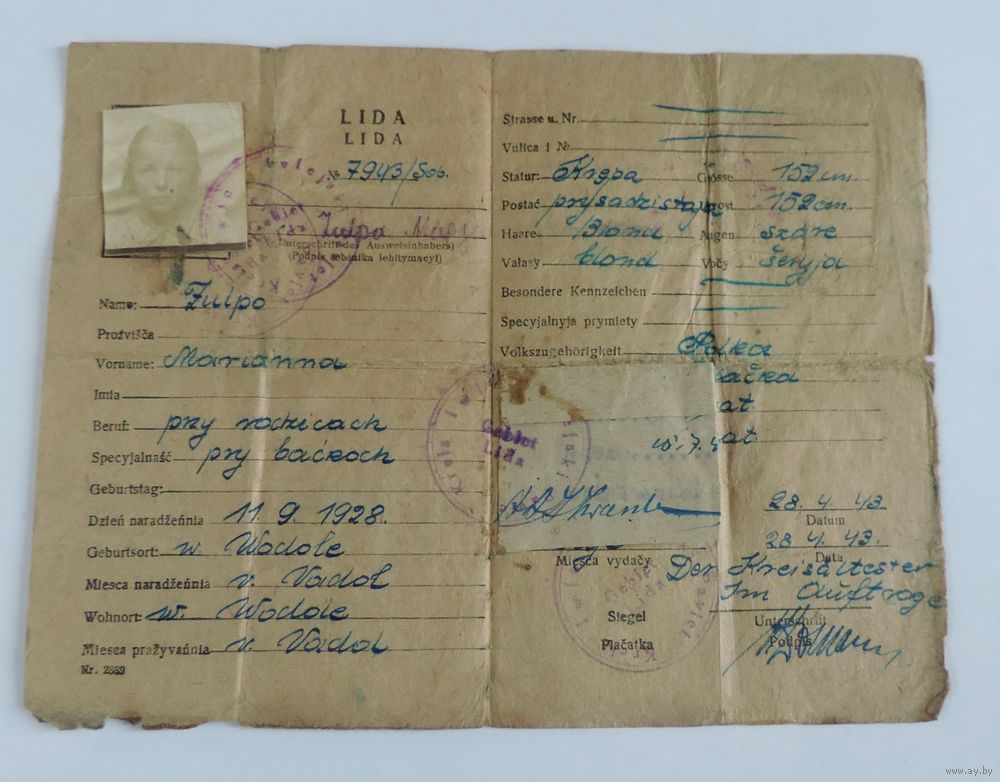 LIDA
LIDA
№ 7943/Sob.
Zulpo
(Unterschrift des Ausweisinhabers)
(Podpis sobśnika lehitymacyi)
Name: Zulpo
Prožvišča
Vorname: Marianna
Imia
Beruf: przy rodzicach
Specyjalnaść pry baćkoch
Geburtstag:
Dzień naradžeńnia 11.9.1928.
Geburtsort: w. Wodole
Miesca naradžeńnia v. Vadol
Wohnort: w. Wodole
Miesca pražyvańnia v. Vadol
Nr. 2889
Strasse u. Nr.
Vulica i №
Statur: Krępa Grösse 152 cm.
Postać prysadzistaja Urost 152 cm.
Haare Blond Augen szare
Valasy blond Vočy šeryja
Besondere Kennzeichen
Specyjalnyja prymiety
Volkszugehörigkeit Polka
ačka
at
at
Gebiet
Lida
28.4.43.
Datum
28.4.43.
Data
Miesca vydačy
Der Kreisältester
Im Auftrage
Siegel Unterschrift
Piačatka Podpis
Gebiet
Lida
www.ay.by